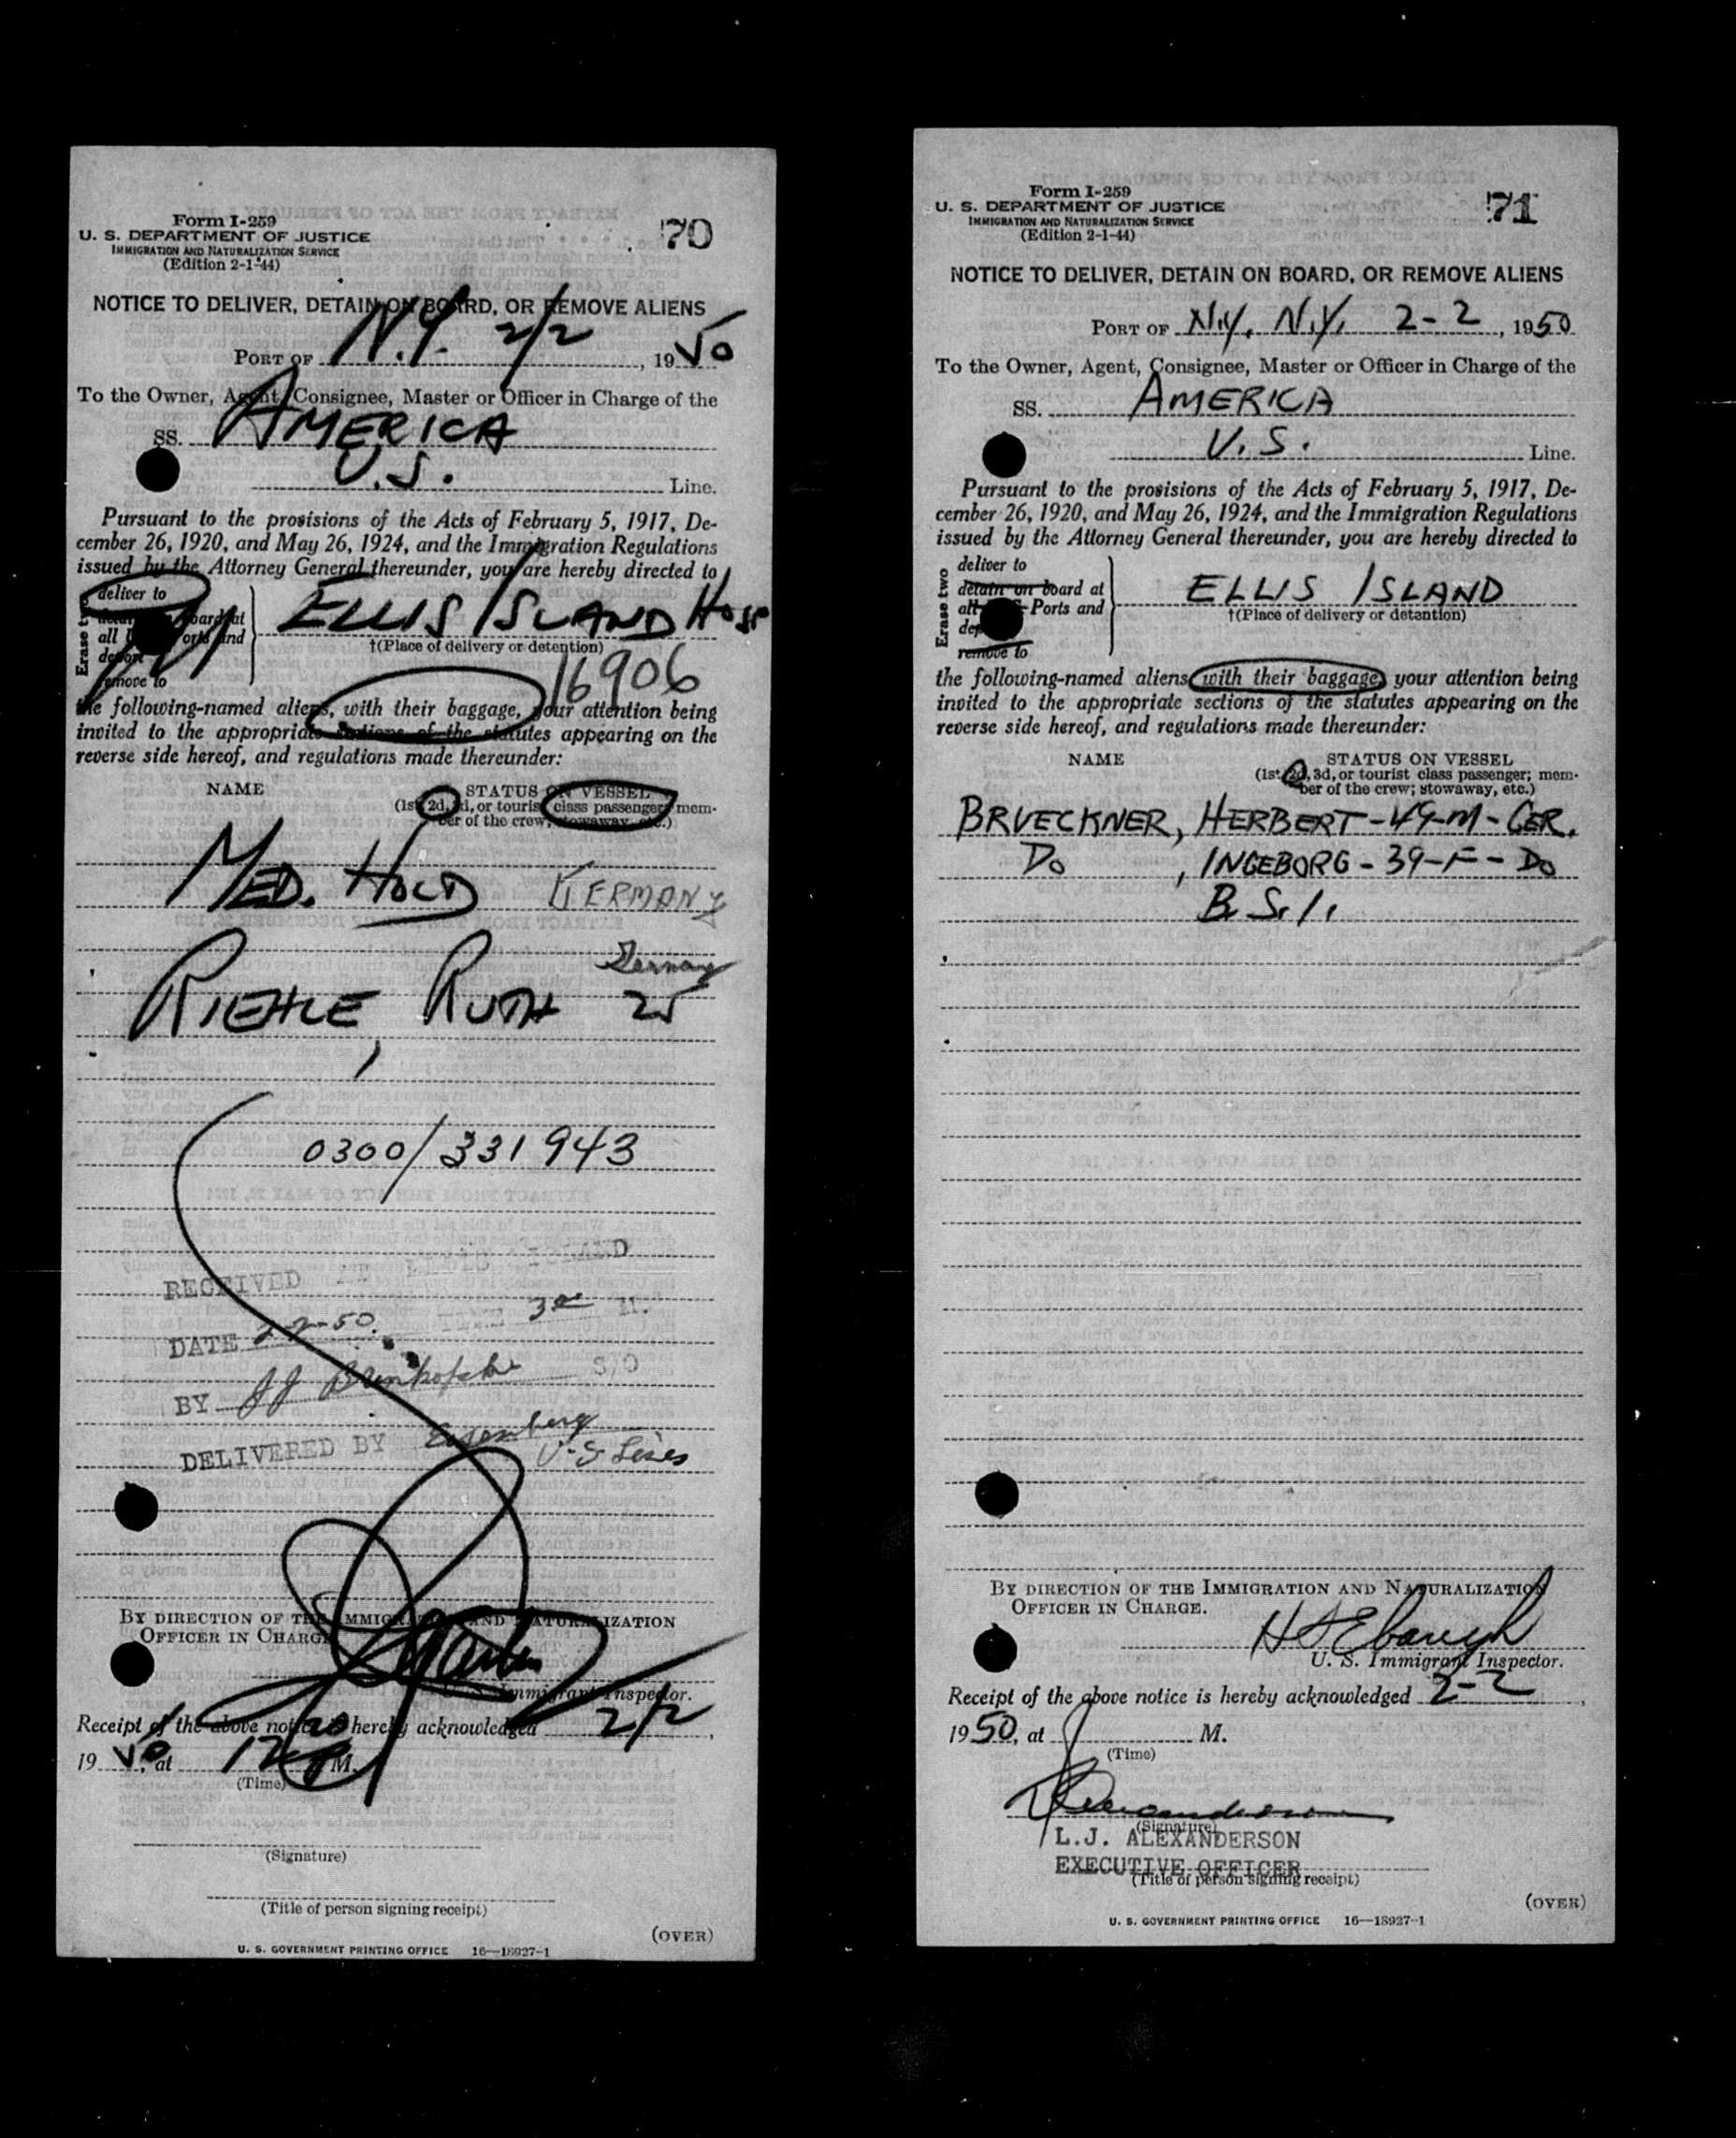 Form I-259
U. S. DEPARTMENT OF JUSTICE
IMMIGRATION AND NATURALIZATION SERVICE
(Edition 2-1-44)
70
NOTICE TO DELIVER, DETAIN ON BOARD, OR REMOVE ALIENS
PORT OF N.Y. 2/2, 1950
To the Owner, Agent, Consignee, Master or Officer in Charge of the
SS. AMERICA
U.S. Line.
Pursuant to the provisions of the Acts of February 5, 1917, De-
cember 26, 1920, and May 26, 1924, and the Immigration Regulations
issued by the Attorney General thereunder, you are hereby directed to
Erase two
deliver to
board at
all Ports and
remove to
ELLIS ISLAND HOSP
†(Place of delivery or detention)
16906
the following-named aliens, with their baggage, your attention being
invited to the appropriate sections of the statutes appearing on the
reverse side hereof, and regulations made thereunder:
NAME
STATUS ON VESSEL
(1st, 2d, 3d, or tourist class passenger; mem-
ber of the crew; stowaway, etc.)
MED. HOLD GERMANY
Germany
RIEHLE, RUTH 25
0300/331943
RECEIVED AT ELLIS ISLAND
DATE 2-2-50 TIME 3 M.
BY JJ S.O
DELIVERED BY Eisenberg
U-S Lines
BY DIRECTION OF THE IMMIGRATION AND NATURALIZATION
OFFICER IN CHARGE
U. S. Immigrant Inspector.
Receipt of the above notice is hereby acknowledged 2/2,
1950, at 12 M.
(Time)
(Signature)
(Title of person signing receipt)
(OVER)
U. S. GOVERNMENT PRINTING OFFICE 16—18927-1
Form I-259
U. S. DEPARTMENT OF JUSTICE
IMMIGRATION AND NATURALIZATION SERVICE
(Edition 2-1-44)
71
NOTICE TO DELIVER, DETAIN ON BOARD, OR REMOVE ALIENS
PORT OF N.Y. N.Y. 2-2, 1950
To the Owner, Agent, Consignee, Master or Officer in Charge of the
SS. AMERICA
U.S. Line.
Pursuant to the provisions of the Acts of February 5, 1917, De-
cember 26, 1920, and May 26, 1924, and the Immigration Regulations
issued by the Attorney General thereunder, you are hereby directed to
Erase two
deliver to
detain on board at
all Ports and
remove to
ELLIS ISLAND
†(Place of delivery or detention)
the following-named aliens with their baggage, your attention being
invited to the appropriate sections of the statutes appearing on the
reverse side hereof, and regulations made thereunder:
NAME
STATUS ON VESSEL
(1st, 2d, 3d, or tourist class passenger; mem-
ber of the crew; stowaway, etc.)
BRUECKNER, HERBERT-49-M-GER.
DO , INGEBORG-39-F-DO
B.S.I.
BY DIRECTION OF THE IMMIGRATION AND NATURALIZATION
OFFICER IN CHARGE.
H Ebaugh
U. S. Immigrant Inspector.
Receipt of the above notice is hereby acknowledged 2-2,
1950, at M.
(Time)
(Signature)
L.J. ALEXANDERSON
EXECUTIVE OFFICER
(Title of person signing receipt)
(OVER)
U. S. GOVERNMENT PRINTING OFFICE 16—18927-1